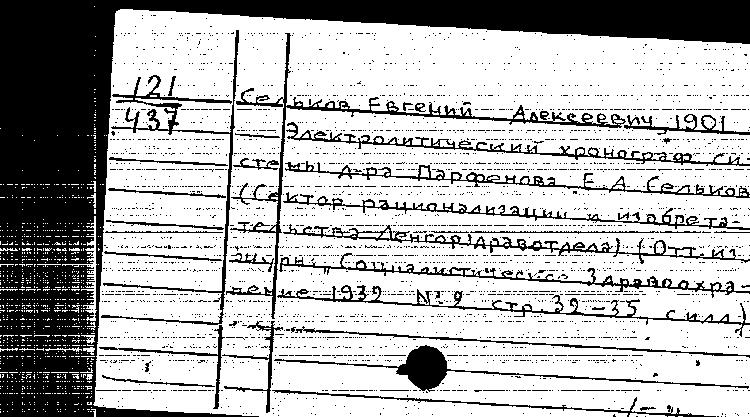 121
437
Сельков, Евгений Алексеевич, 1901
Электролитический хронограф си
стемы д-ра Парфенова Е.А Сельков
(Сектор рационализации и изобрета-
тельства Ленгорздравотдела) (Отт. из
журн. „Социалистическое Здравоохра-
нение 1932 № 9 стр. 32-35, с илл)